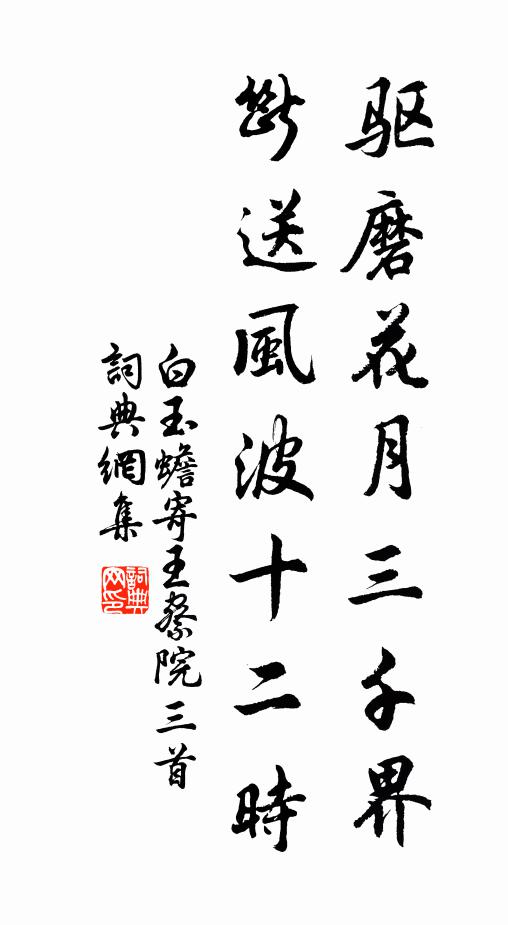 驱磨花月三千界
断送風波十二時
白玉蟾寄王察院三首
詞典網集
詞典网印